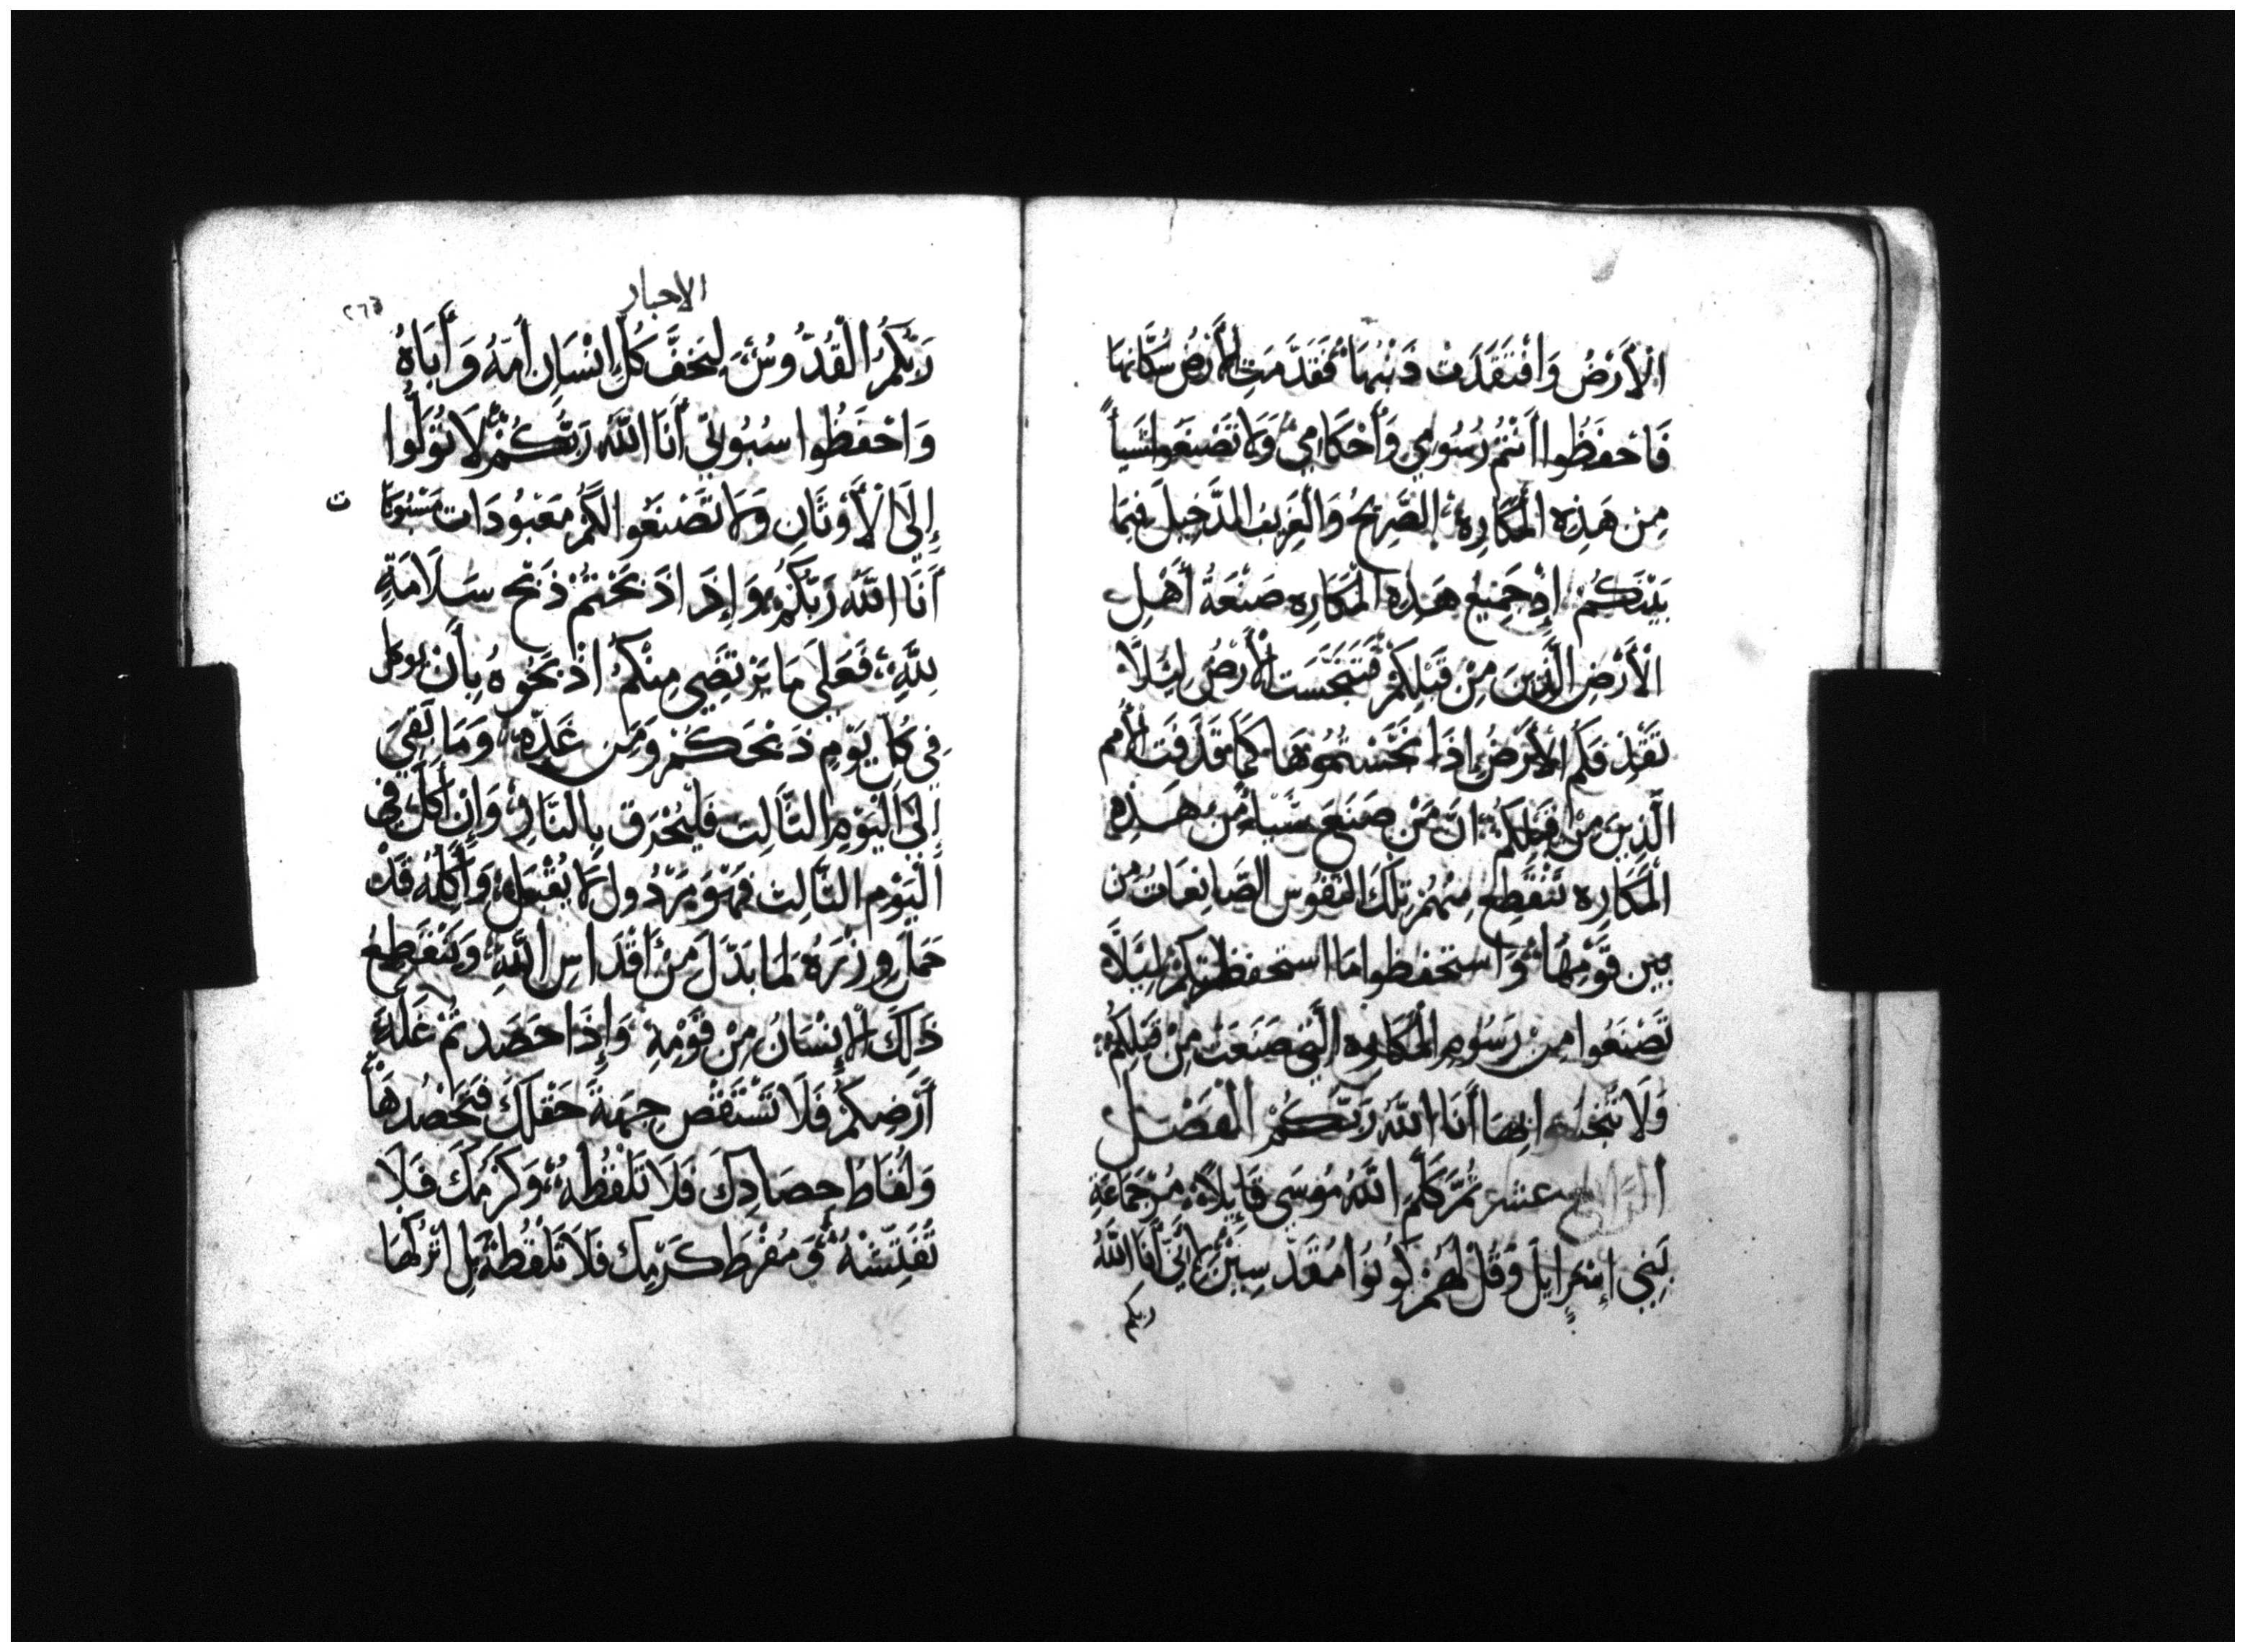 الْأَرْضُ وَافْتَقَدَتْ ذَنْبَهَا فَقَدَّمَتِ الْأَرْضُ سُكَّانَهَا
فَاحْفَظُوا أَنْتُمْ رُسُومِي وَأَحْكَامِي وَلَا تَصْنَعُوا شَيأً
مِنْ هَذِهِ الْمَكَارِهِ الصَّرِيحُ وَالْغَرِيبُ الدَّخِيلُ فِيمَا
بَيْنَكُمْ إِذْ جَمِيعُ هَذِهِ الْمَكَارِهِ صَنْعَهُ أَهْلِ
الْأَرْضِ الَّذِينَ مِنْ قَبْلِكُمْ فَتَنَجَّسَتِ الْأَرْضُ لِيَلَّا
تَقْذِفَكُمُ الْأَرْضُ إِذَا نَجَّسْتُمُوهَا كَمَا قَذَفَتِ الْأُمَم
الَّذِينَ مِنْ قَبْلِكُمْ انَّ مَنْ صَنَعَ شَيأً مِنْ هَذِهِ
الْمَكَارِهِ تَنْقَطِعُ مِنْهُمْ تِلْكَ النُّفُوس الصَّانِعَاتُ مِن
بَيْنِ قَوْمِهَا وَاسْتَحْفِظُوا مَا اسْتَحْفَظْتُكُمْ لِيَلَّا
تَصْنَعُوا مِنْ رُسُومِ الْمَكَارِهِ الَّتِي صَنَعَتْ مِنْ قَبْلِكُمْ
وَلَا تَنْجَسُوا بِهَا أَنَا اللَّهُ رَبُّكُمْ الْفَصْل
الرَّابِع عَشَر ثُمَّ كَلَّمَ اللَّهُ مُوسَى قَايِلًا مُرْ جَمَاعَةِ
بَنِي إِسْرَايِلَ وَقُلْ لَهُمْ كُونُوا مُقَدَّسِينَ لِأَنِّي أَنَا اللَّهُ
ربكم
الاحبار
رَبُّكُمُ الْقُدُّوسُ لِيَخَفْ كُلُّ إِنْسَانٍ أُمَّهُ وَأَبَاهُ
وَاحْفَظُوا سُبُوتِي أَنَا اللَّهُ رَبُّكُمْ لَا تُوَلُّوا
إِلَى الْأَوْثَانِ وَلَا تَصْنَعُوا لَكُمْ مَعْبُودَات مَسْبُوكَا ت
أَنَا اللَّهُ رَبُّكُمْ وَإِذَا ذَبَحْتُمْ ذَبْحَ سَلَامَةٍ
لِلَّهِ فَعَلَى مَا يَرْتَضِي مِنْكُمْ اذْبَحُوهُ بِأَنْ يوكل
فِي كُلِّ يَوْمِ ذَبْحَكُمْ وَمِنْ غَدِهِ وَمَا بَقِيَ
إِلَى الْيَوْمِ الثَّالِثِ فَلْيُحْرَق بِالنَّارِ وَإِنْ أُكِلَ فِي
الْيَوْمِ الثَّالِثِ فَهُوَ مَرْدُول لَا يُقْبَلُ وَآكِلُهُ قَدْ
حَمَلَ وِزْرَهُ لِمَا بَذَلَ مِنْ أَقْدَاسِ اللَّهِ وَيَنْقَطِعُ
ذَلِكَ الْإِنْسَانُ مِنْ قَوْمِهِ وَإِذَا حَصَدْتُمْ غَلَّةَ
أَرْضِكُمْ فَلَا تَسْتَقْصِ جِهَةَ حَقْلِكَ فَتَحْصُدُهَا
وَلُقَاطُ حِصَادِكَ فَلَا تَلْقُطْهُ وَكَرْمِكَ فَلَا
تُفَتِّشْهُ وَمُفْرَطَ كَرْمِكَ فَلَا تَلْقُطْهُ بَلِ اتْرُكْهَا